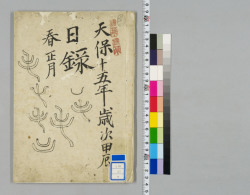 天保十五年歳次甲辰
日録
春正月